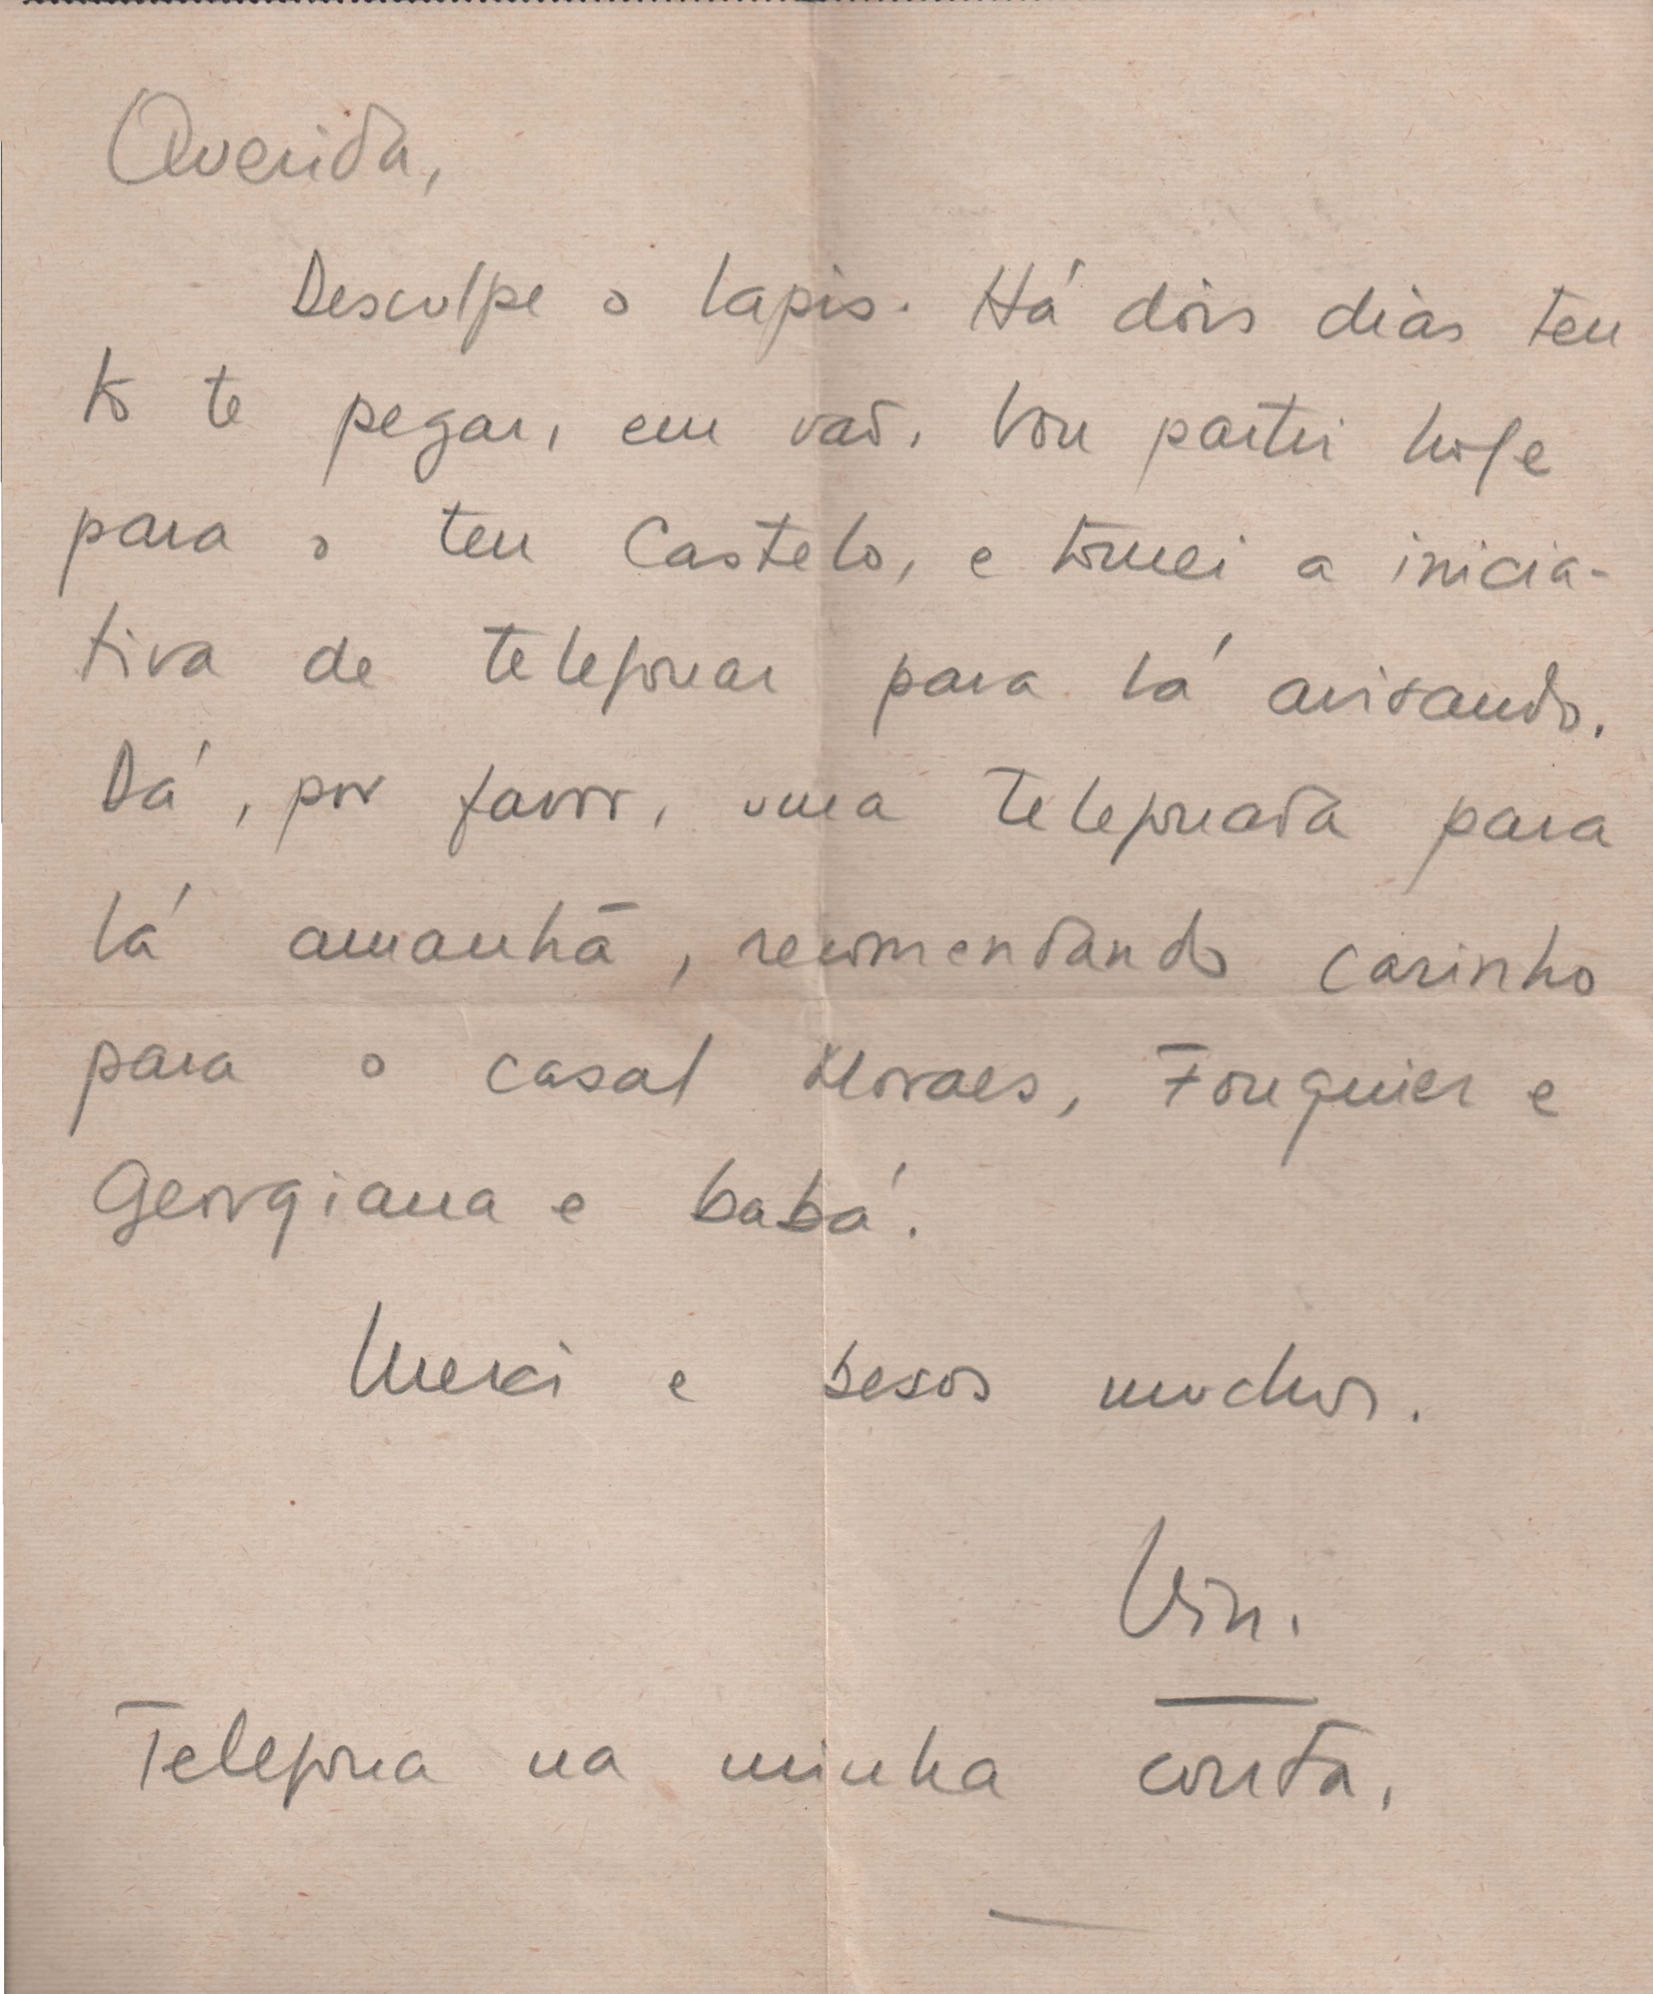 Querida,
Desculpe o lapis. Há dois dias ten
to te pegar, em vaõ. Vou partir hoje
para o teu Castelo, e tomei a inicia-
tiva de telefonar para lá avisando.
Dá, por favor, uma telefonada para
lá amanhã, recomendando carinho
para o casal Moraes, Fouquier e
Georgiana e babá.
Merci e besos muchos.
Vin.
Telefona na minha conta.